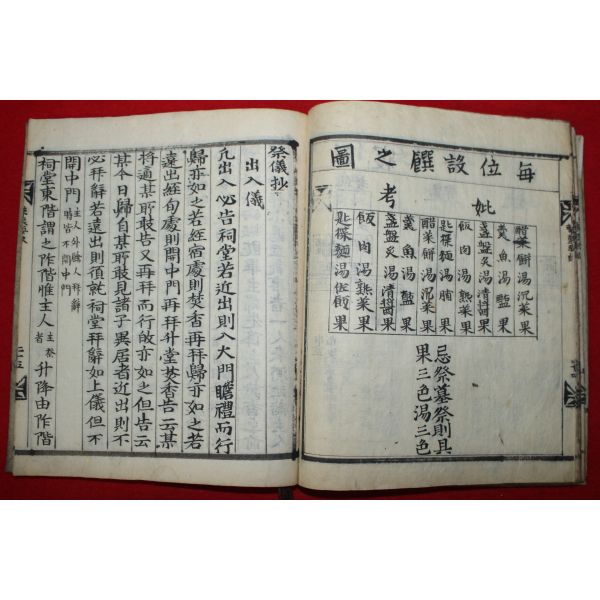 每位設饌之圖
妣
考
醋菜 餠 湯 沉菜 果
羹 魚 湯 醢 果
盞盤 炙 湯 清醬 果
飯 肉 湯 熟菜 果
匙楪 麵 湯 脯 果
醋菜 餠 湯 沉菜 果
羹 魚 湯 醢 果
盞盤 炙 湯 清醬 果
飯 肉 湯 熟菜 果
匙楪 麵 湯 佐飯 果
忌祭墓祭則具
果三色湯三色
祭儀抄
出入儀
凡出入必告祠堂若近出則入大門瞻禮而行
歸亦如之若經宿處則焚香再拜歸亦如之若
遠出經旬處則開中門再拜升堂焚香告云某
將適某所敢告又再拜而行亦如之但告云
某今日歸自某所敢見諸子異居者近出則不
必拜辭若遠出則須就祠堂拜辭如上儀但不
開中門 主人外餘人拜辭時皆不開中門
祠堂東階謂之阼階惟主人 主祭者 升降由阼階